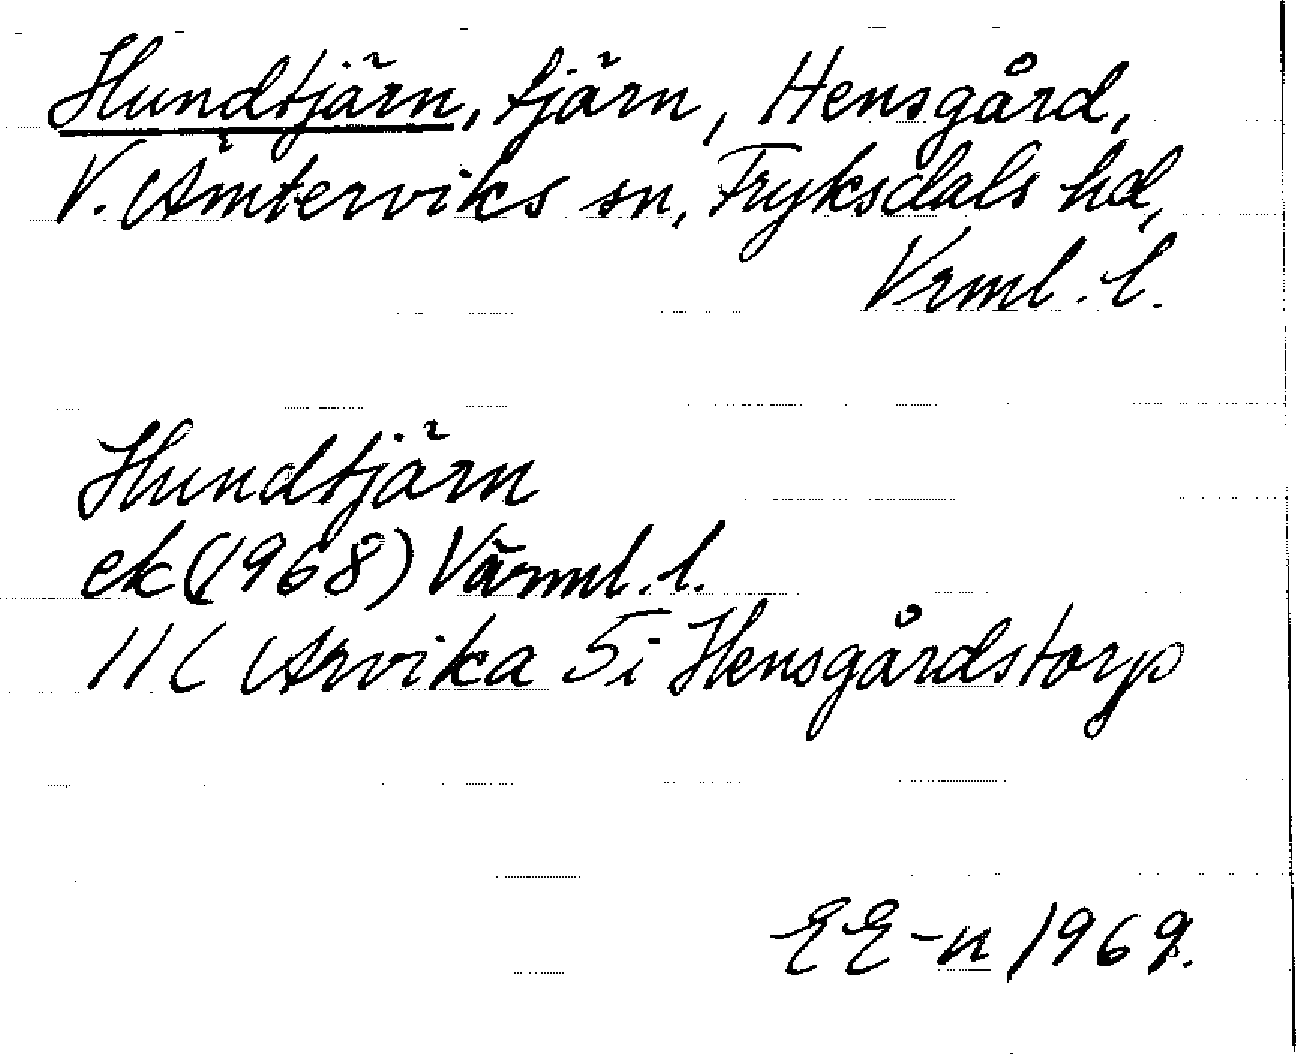 Hundtjärn, tjärn, Hensgård,
V. Ämterviks sn, Fryksdals hd,
Vrml. l.
Hundtjärn
ek (1968) Värml. l.
11C Arvika 5i Hensgårdstorp
EE-n 1969.